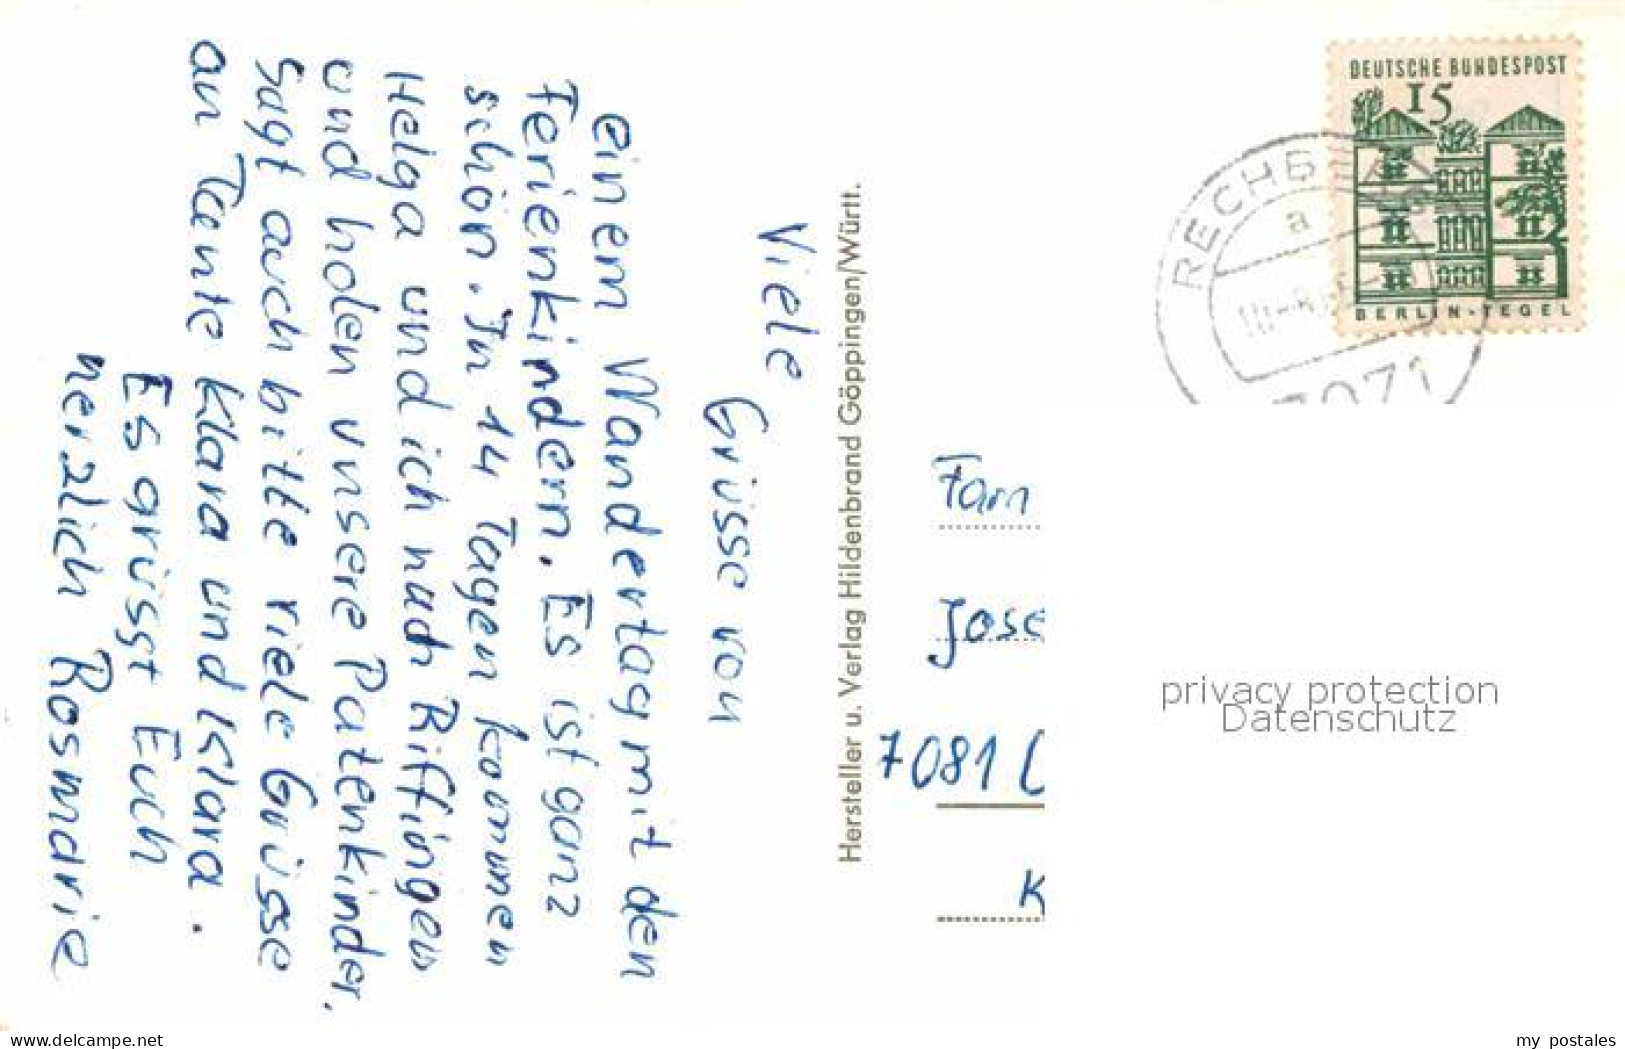 Viele
Grüsse von
einem Wandertag mit den
Ferienkindern. Es ist ganz
schön. In 14 Tagen kommen
Helga und ich nach Riffingen
und holen unsere Patenkinder.
Sagt auch bitte viele Grüsse
an Tante Klara und Klara.
Es grüsst Euch
herzlich Rosmarie
Hersteller u. Verlag Hildenbrand Göppingen/Württ.
DEUTSCHE BUNDESPOST
15
BERLIN-TEGEL
RECHBERG
a
7071
Fam
Jose
7081
K
privacy protection
Datenschutz
©delcampe.net
my_postales